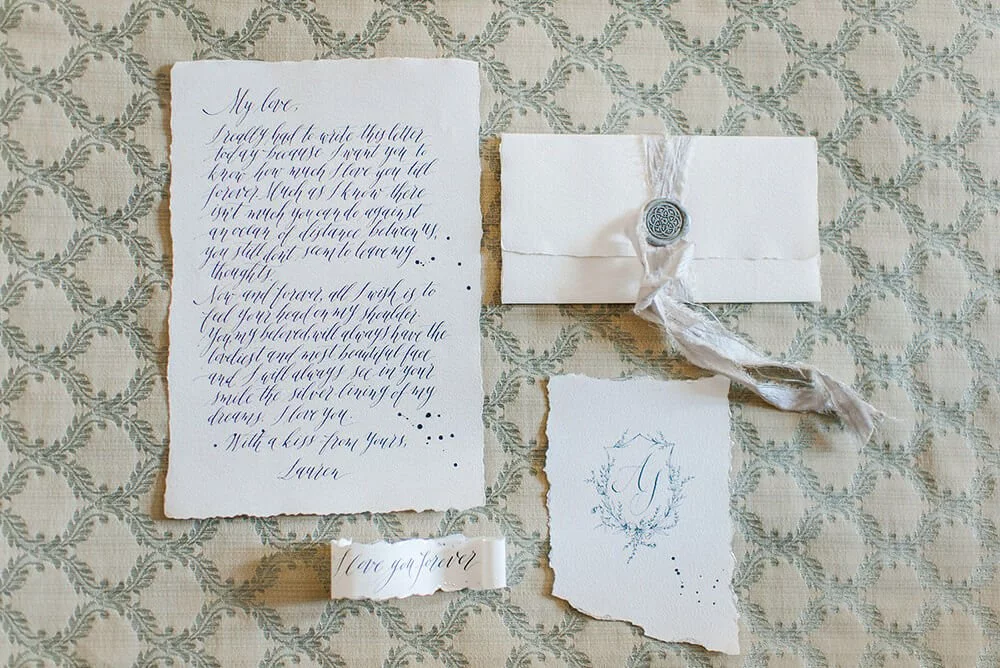 My love,
I really had to wrote this letter
today because I want you to
know how much I love you till
forever. Much as I know there
isn't much you can do against
an ocean of distance between us,
you still don't seem to leave my
thoughts.
Now and forever, all I wish is to
feel your head on my shoulder.
You my beloved will always have the
loveliest and most beautiful face
and I will always see in your
smile the silver lining of my
dreams. I love you.
With a kiss from yours,
Lauren
I love you forever
AG